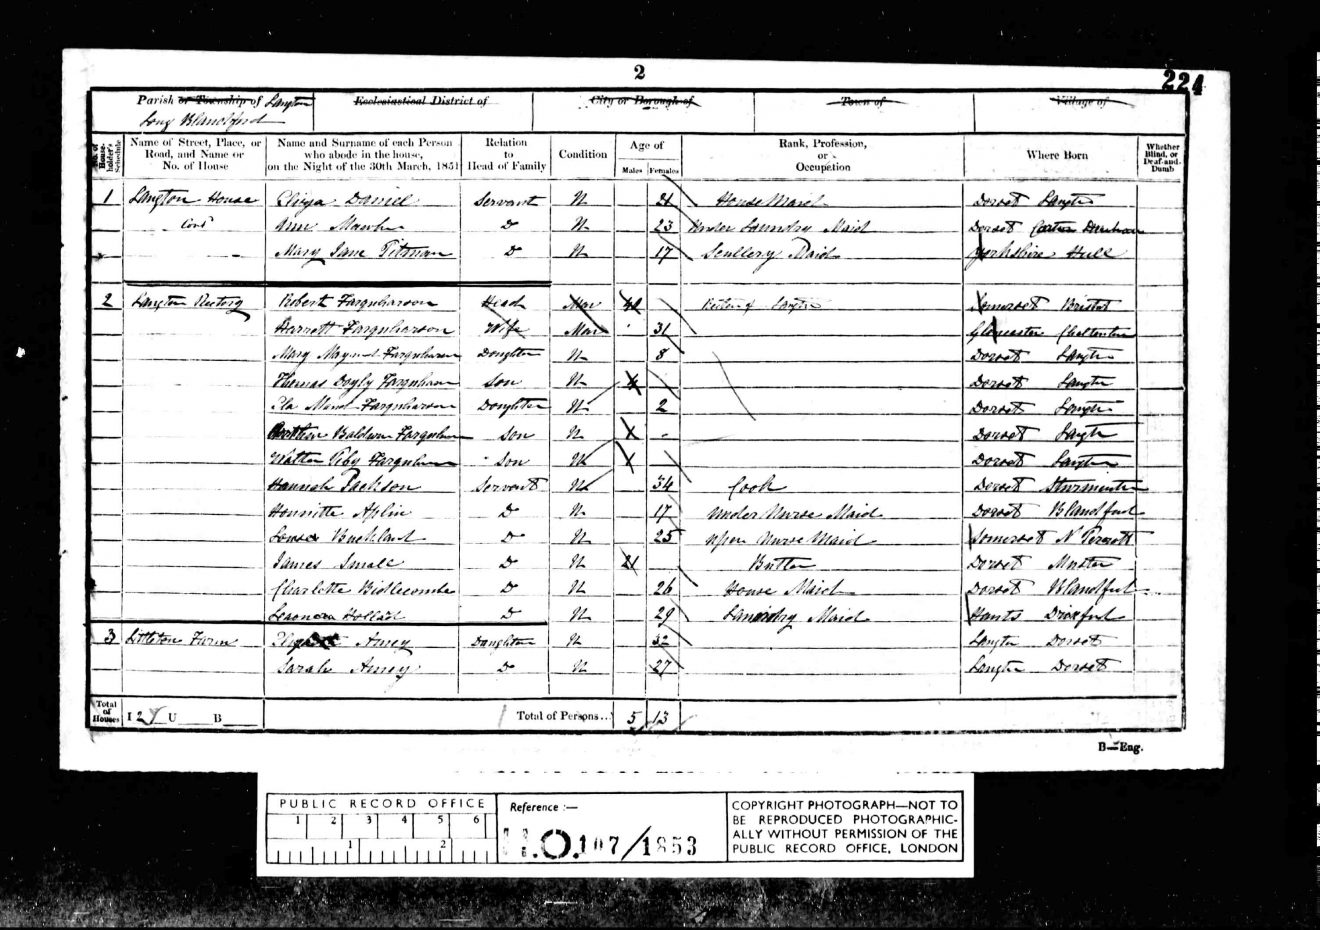 2
224
Parish or Township of Langton Long Blandford
Ecclesiastical District of
City or Borough of
Town of
Village of
No. of House-holder's Schedule
Name of Street, Place, or Road, and Name or No. of House
Name and Surname of each Person who abode in the house, on the Night of the 30th March, 1851
Relation to Head of Family
Condition
Age of
Males Females
Rank, Profession, or Occupation
Where Born
Whether Blind, or Deaf-and-Dumb
1 Langton House Eliza Daniel Servant U 21 House Maid Dorset Langton
Cont Ann D U 23 Under Laundry Maid Dorset
Mary Jane Pitman D U 17 Scullery Maid Yorkshire Hull
2 Langton Rectory Robert Farquharson Head Mar Rector of Langton Somerset Bristol
Harriett Farquharson Wife Mar 31 Gloucester Cheltenham
Mary Farquharson Daughter U 8 Dorset Langton
Thomas Doyly Farquharson Son U 4 Dorset Langton
Ela Farquharson Daughter U 2 Dorset Langton
Baldwin Farquharson Son U Dorset Langton
Farquharson Son U Dorset Langton
Hannah Jackson Servant U 34 Cook Dorset Sturminster
Aplin D U 17 Under Nurse Maid Dorset Blandford
Louisa D U 25 Upper Nurse Maid Somerset N Perrott
James Small D U 21 Butler Dorset
Charlotte Bidlecombe D U 26 House Maid Dorset Blandford
D U 29 Laundry Maid Hants
3 Littleton Farm Amey Daughter U 32 Langton Dorset
Sarah Amey D U 27 Langton Dorset
Total of Houses I 2 U B Total of Persons... 5 13
B—Eng.
PUBLIC RECORD OFFICE
1 2 3 4 5 6
1 2
Reference :—
H.O. 107/1853
COPYRIGHT PHOTOGRAPH—NOT TO
BE REPRODUCED PHOTOGRAPHIC-
ALLY WITHOUT PERMISSION OF THE
PUBLIC RECORD OFFICE, LONDON